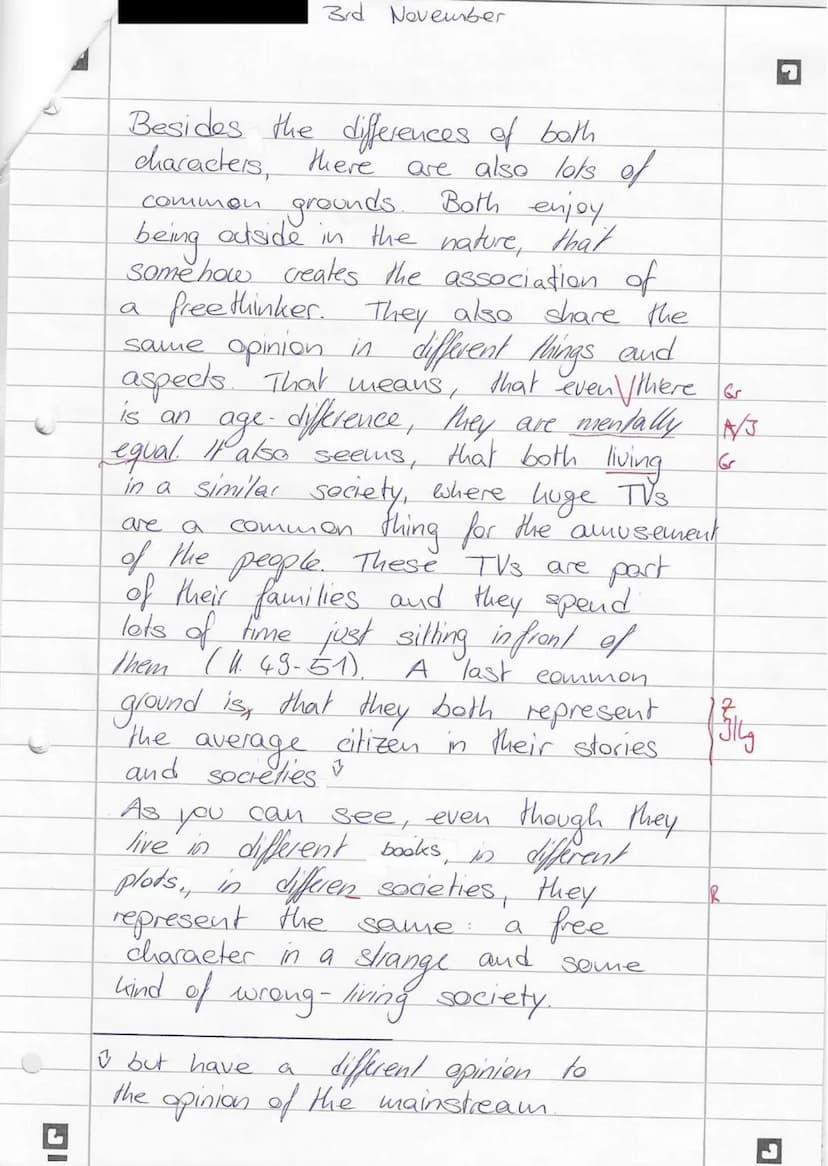 3rd November
Besides the differences of both
characters, there are also lots of
common grounds. Both enjoy
being outside in the nature, that
somehow creates the association of
a freethinker. They also share the
same opinion in different things and
aspects. That means, that even \/ there Gr
is an age-difference, they are mentally A/J
equal. It also seems, that both living Gr
in a similar society, where huge TVs
are a common thing for the amusement
of the people. These TVs are part
of their families and they spend
lots of time just sitting infront of
them (ll. 49-51). A last common
ground is, that they both represent Z
the average citizen in their stories
and societies ①
As you can see, even though they
live in different books, in different
plots, in differen societies, they R
represent the same: a free
character in a strange and some
kind of wrong-living society.
① but have a different opinion to
the opinion of the mainstream.